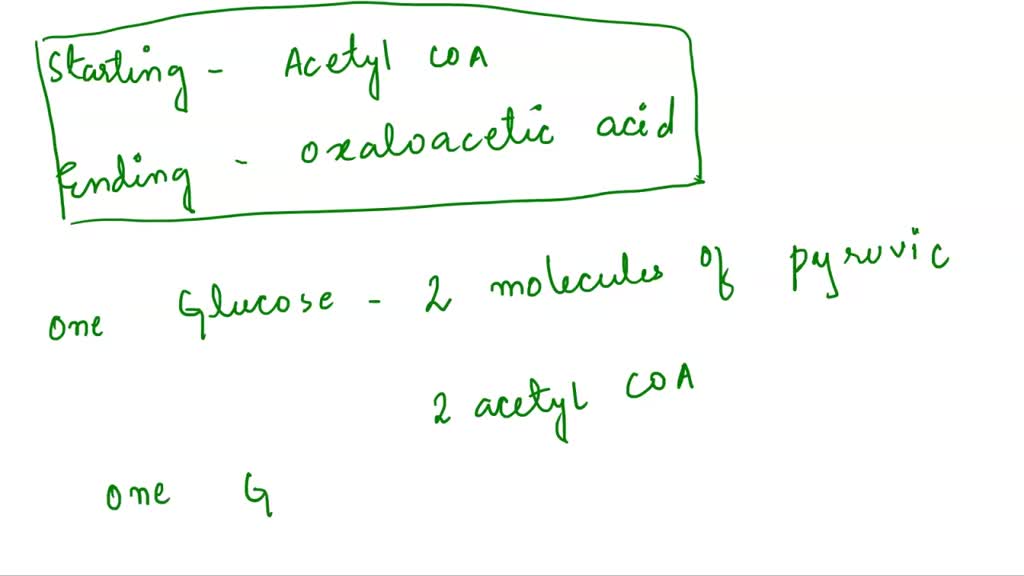 Starting - Acetyl COA
Ending - oxaloacetic acid
one Glucose - 2 molecules of pyruvic
2 acetyl COA
one G